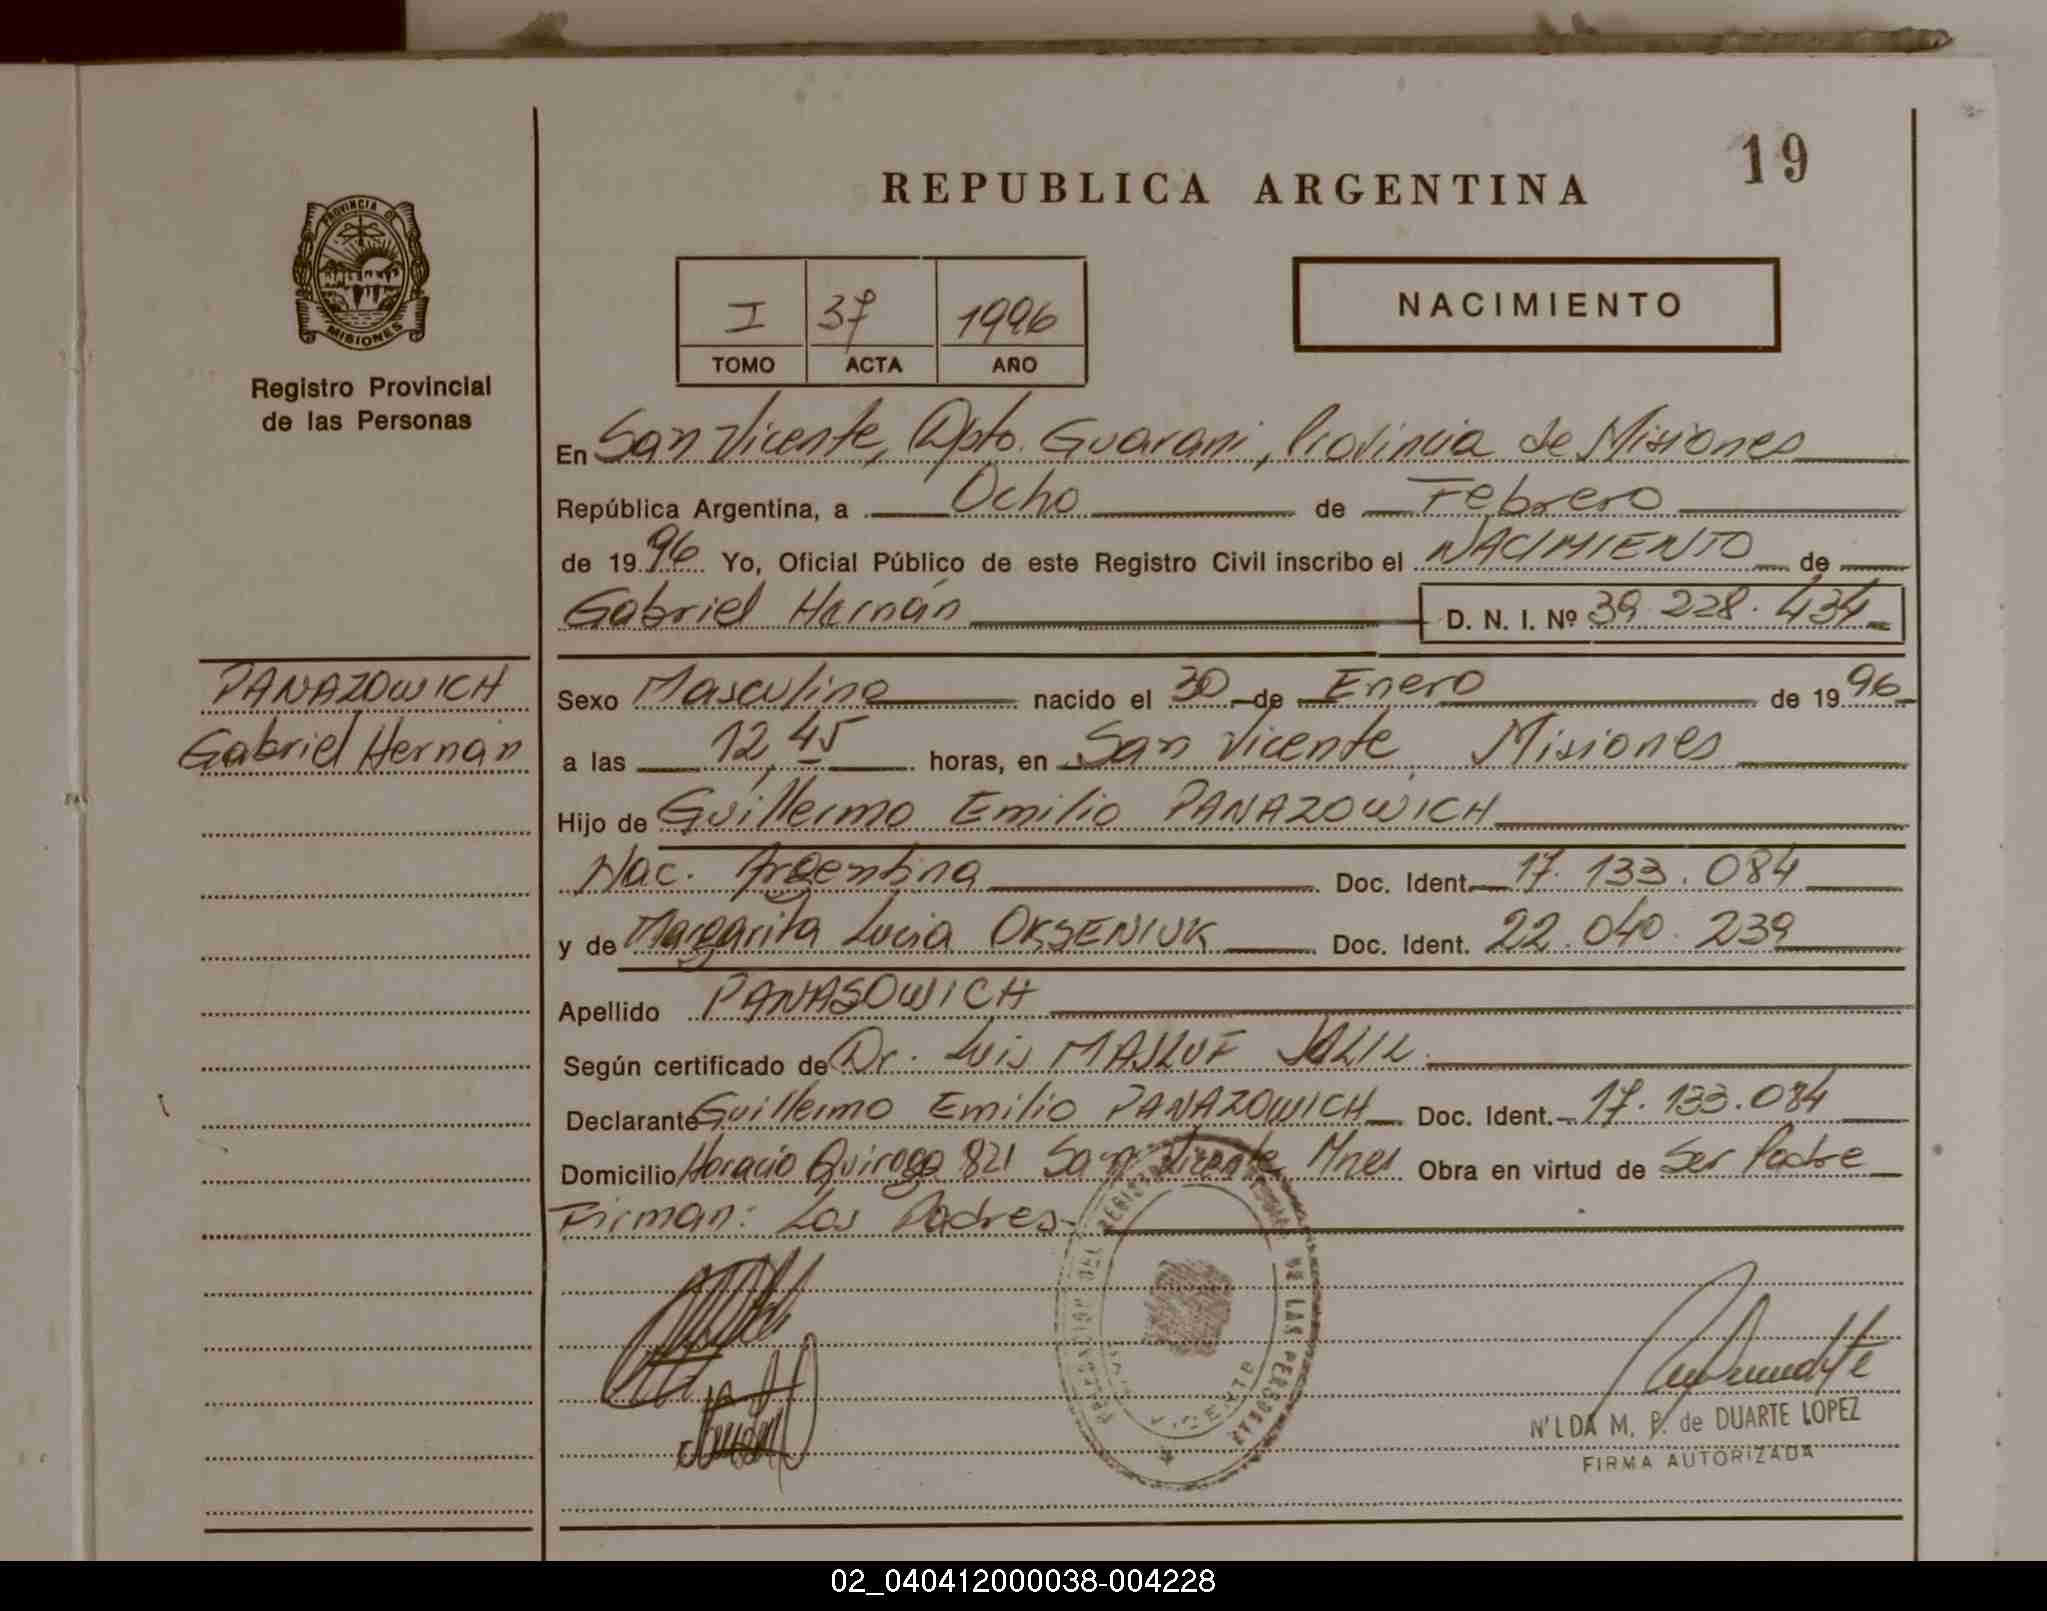 19
REPUBLICA ARGENTINA
PROVINCIA DE
MISIONES
Registro Provincial
de las Personas
I 37 1996
TOMO ACTA AÑO
NACIMIENTO
En San Vicente, Dpto. Guarani, Provincia de Misiones
República Argentina, a Ocho de Febrero
de 1996 Yo, Oficial Público de este Registro Civil inscribo el NACIMIENTO de
Gabriel Hernán D. N. I. Nº 39.228.434
PANAZOWICH
Gabriel Hernán
Sexo Masculino nacido el 30 de Enero de 1996
a las 12,45 horas, en San Vicente, Misiones
Hijo de Guillermo Emilio PANAZOWICH
Nac. Argentina Doc. Ident. 17.133.084
y de Margarita Lucia OKSENIUK Doc. Ident. 22.040.239
Apellido PANASOWICH
Según certificado de Dr. Luis MASLUF JALIL.
Declarante Guillermo Emilio PANAZOWICH Doc. Ident. 17.133.084
Domicilio Horacio Quiroga 821 San Vicente Mnes Obra en virtud de Ser Padre
Firman: Los Padres
DELEGACION DEL REGISTRO DE LAS PERSONAS
VICENTE
N'LDA M. P. de DUARTE LOPEZ
FIRMA AUTORIZADA
02_040412000038-004228